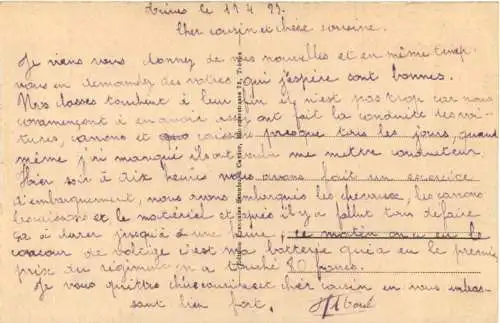 Trèves le 11 4 27.
Cher cousin et chère cousine.
Je viens vous donner de mes nouvelles et en même temp
vous en demander des votres qui j'espère sont bonnes.
Nos classes touchent à leur fin il n'est pas trop car nous
commençont à en avoir assez ont fait la conduite des voi-
tures, canons et caissons presque tous les jours, quand
même j'ai manqué ils ont voulu me mettre conducteur.
Hier soir à dix heures nous avons fait un exercice
d'embarquement, nous avons embarqués les chevaux, les canons
les caissons et le matériel et après il y a fallut tous défaire
ça à durer jusqu'à une heure, ce matin on a eu le
concour de voltige c'est ma batterye qui a eu le premier
prix du régiment on a touché 80 francs.
Je vous quitte chère cousine et cher cousin en vous embras-
sant bien fort.